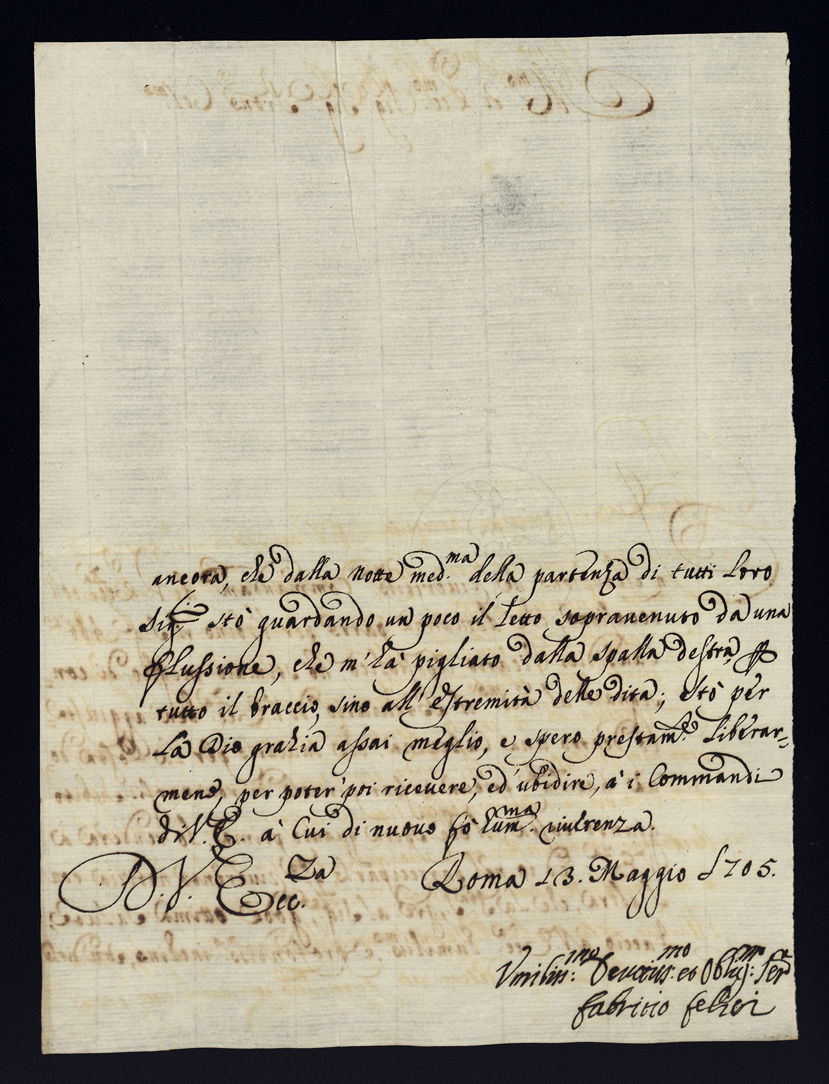 ancora, che dalla Notte med.ma della partenza di tutti Loro
Sig.ri stò guardando un poco il Letto sopravenuto da una
flussione, che m'hà pigliato dalla spalla destra, p
tutto il braccio, sino all'estremità delle dita; stò per
La Dio grazia assai meglio, e spero prestam.te Liberar-
mene, per poter' poi ricevere, ed ubidire, à i Commandi
di V. E. à Cui di nuovo fò hum.ma riverenza.
D. V. Ecc.za Roma 13. Maggio 1705.
Umiliss.mo Devotiss.mo et Obblig.mo Ser.e
Fabritio Felici